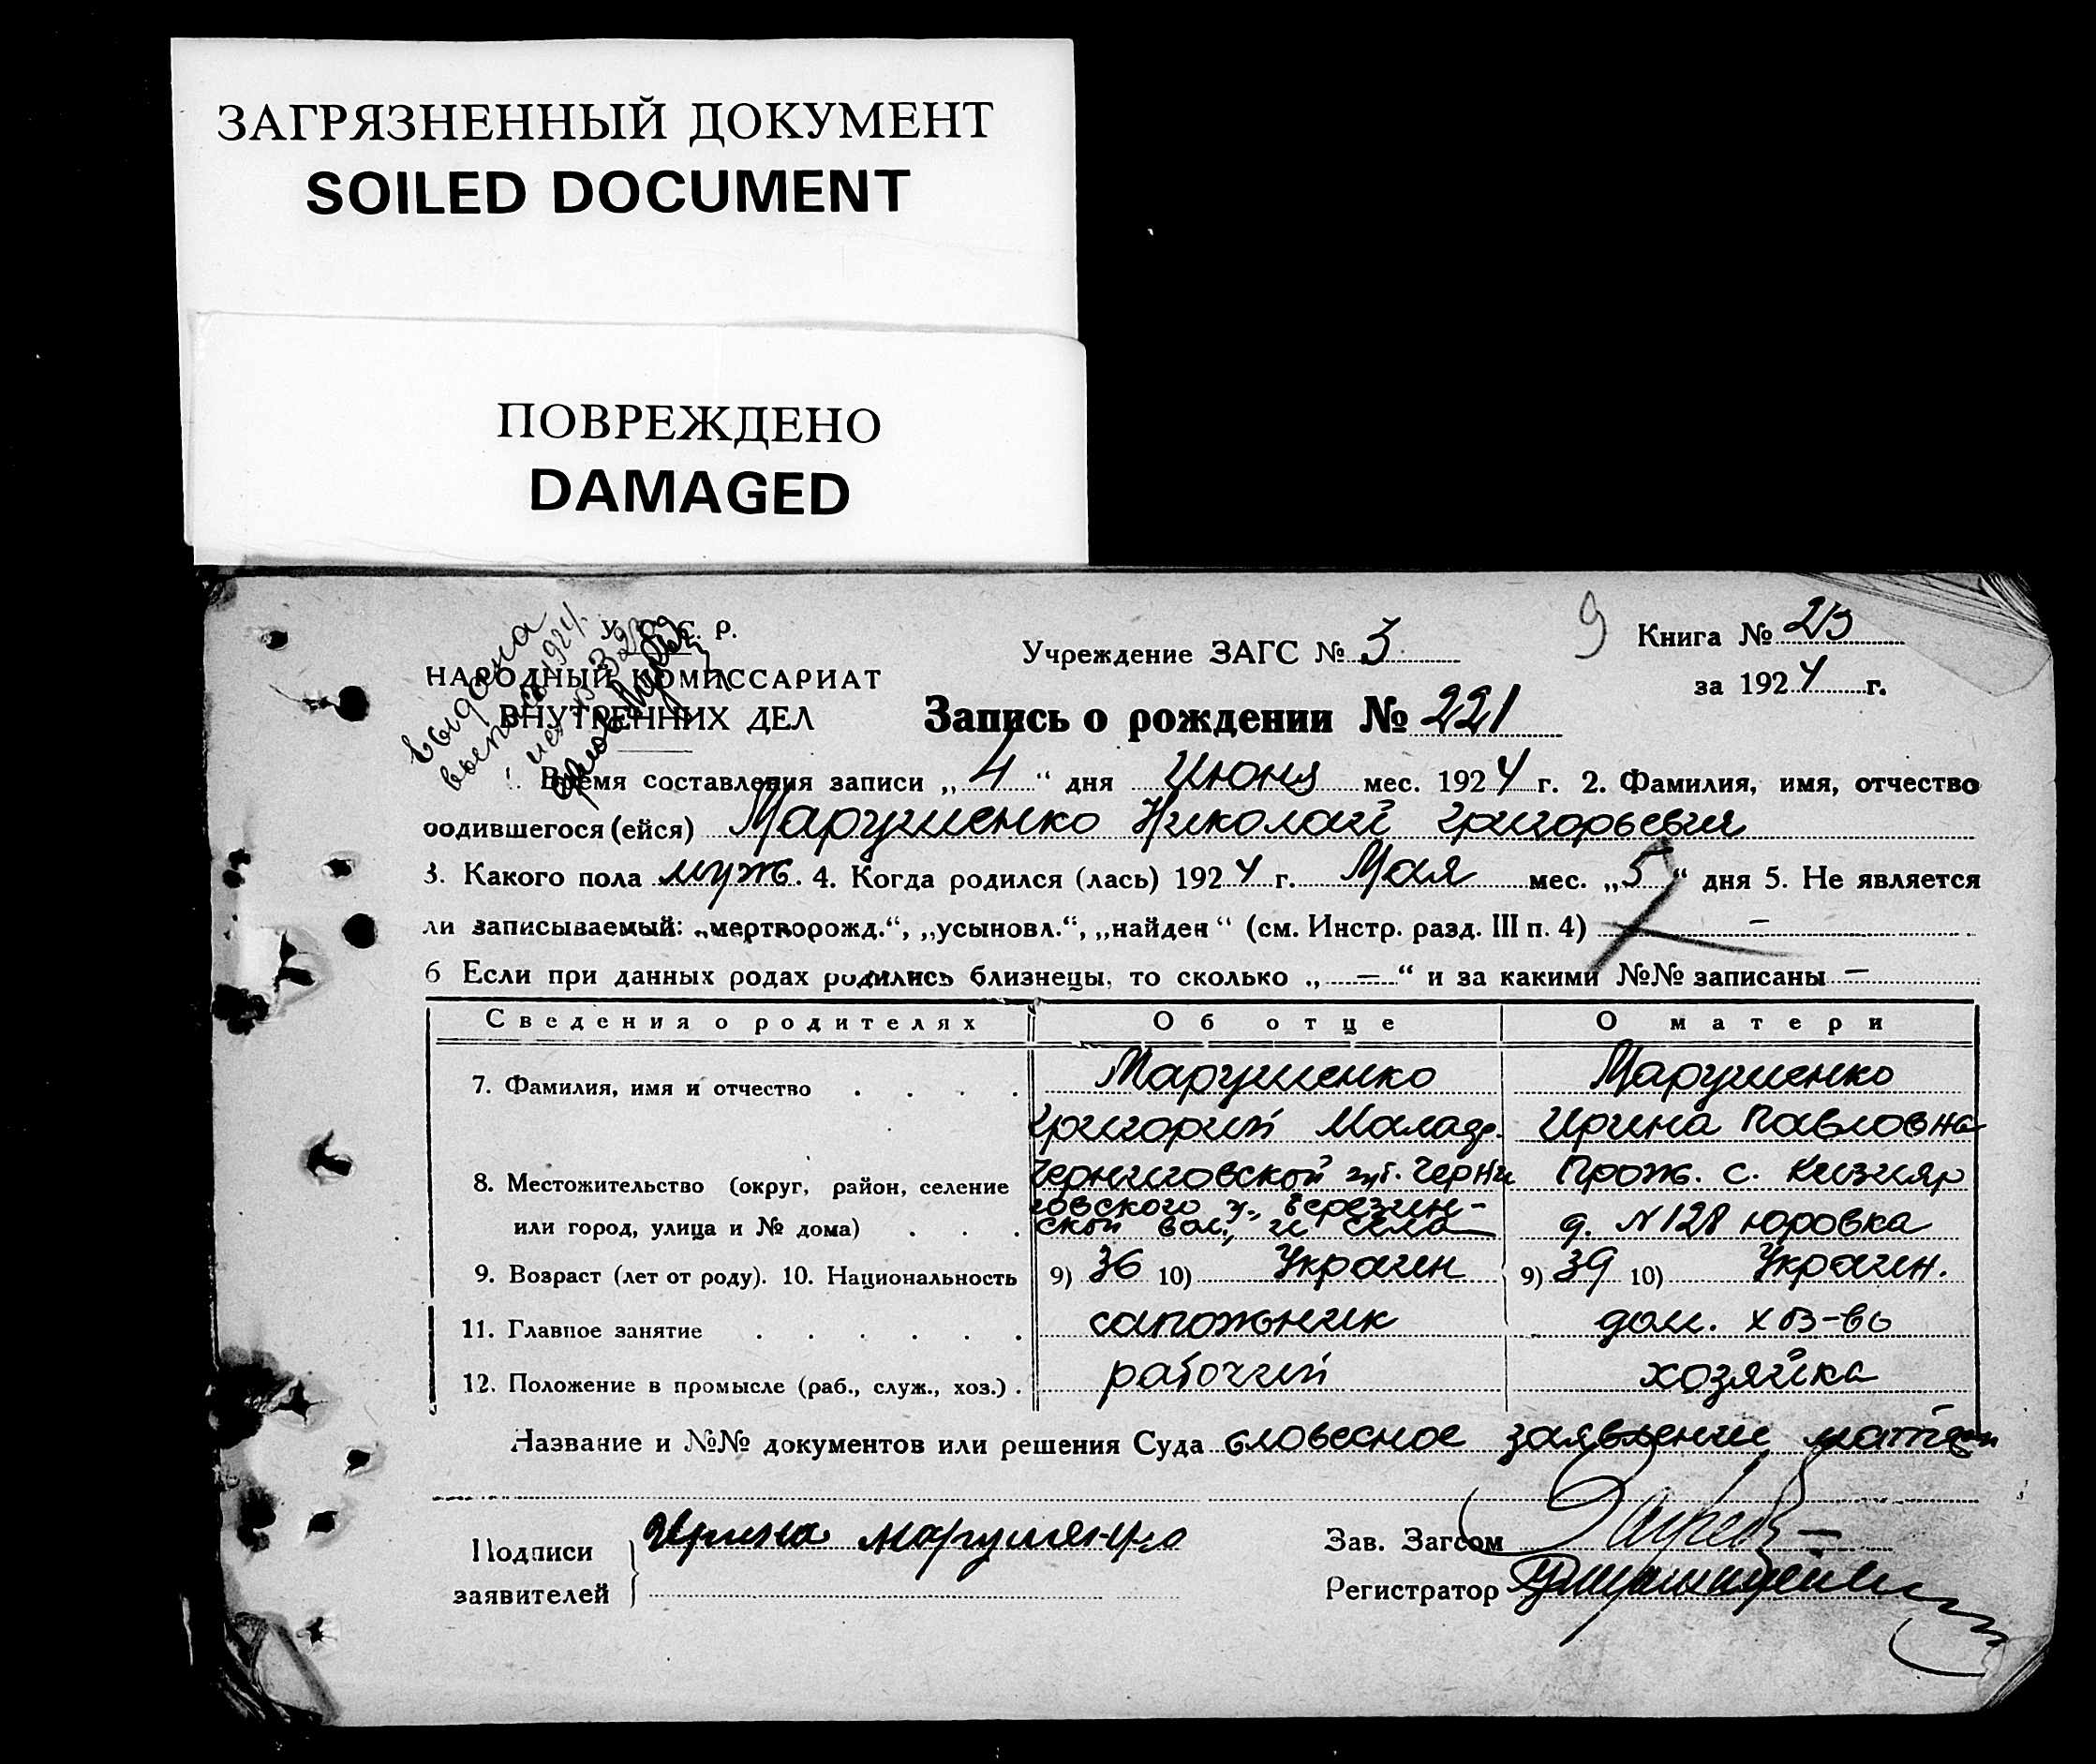 ЗАГРЯЗНЕННЫЙ ДОКУМЕНТ
SOILED DOCUMENT
ПОВРЕЖДЕНО
DAMAGED
У. С. С. Р.
НАРОДНЫЙ КОМИССАРИАТ
ВНУТРЕННИХ ДЕЛ
Выдана
Учреждение ЗАГС № 3
9
Книга № 23
за 1924 г.
Запись о рождении № 221
Время составления записи „4“ дня Июня мес. 1924 г. 2. Фамилия, имя, отчество
родившегося (ейся) Марушенко Николай Григорьевич
3. Какого пола муж. 4. Когда родился (лась) 1924 г. Мая мес. „5“ дня 5. Не является
ли записываемый: „мертворожд.“, „усыновл.“, „найден“ (см. Инстр. разд. III п. 4) —
6 Если при данных родах родились близнецы, то сколько „—“ и за какими №№ записаны —
Сведения о родителях Об отце О матери
7. Фамилия, имя и отчество Марушенко Марушенко
Григорий Ирина Павловна
8. Местожительство (округ, район, селение Черниговской губ. Черни Прож. с. Кизияр
или город, улица и № дома) говского у., Березин-
ской вол., и села д. №128 Юровка
9. Возраст (лет от роду). 10. Национальность 9) 36 10) Украин 9) 39 10) Украин.
11. Главное занятие сапожьник дом. хоз-во
12. Положение в промысле (раб., служ., хоз.) рабочий хозяйка
Название и №№ документов или решения Суда словесное заявление матери
Подписи
заявителей
Ирина марушянко
Зав. Загсом
Регистратор